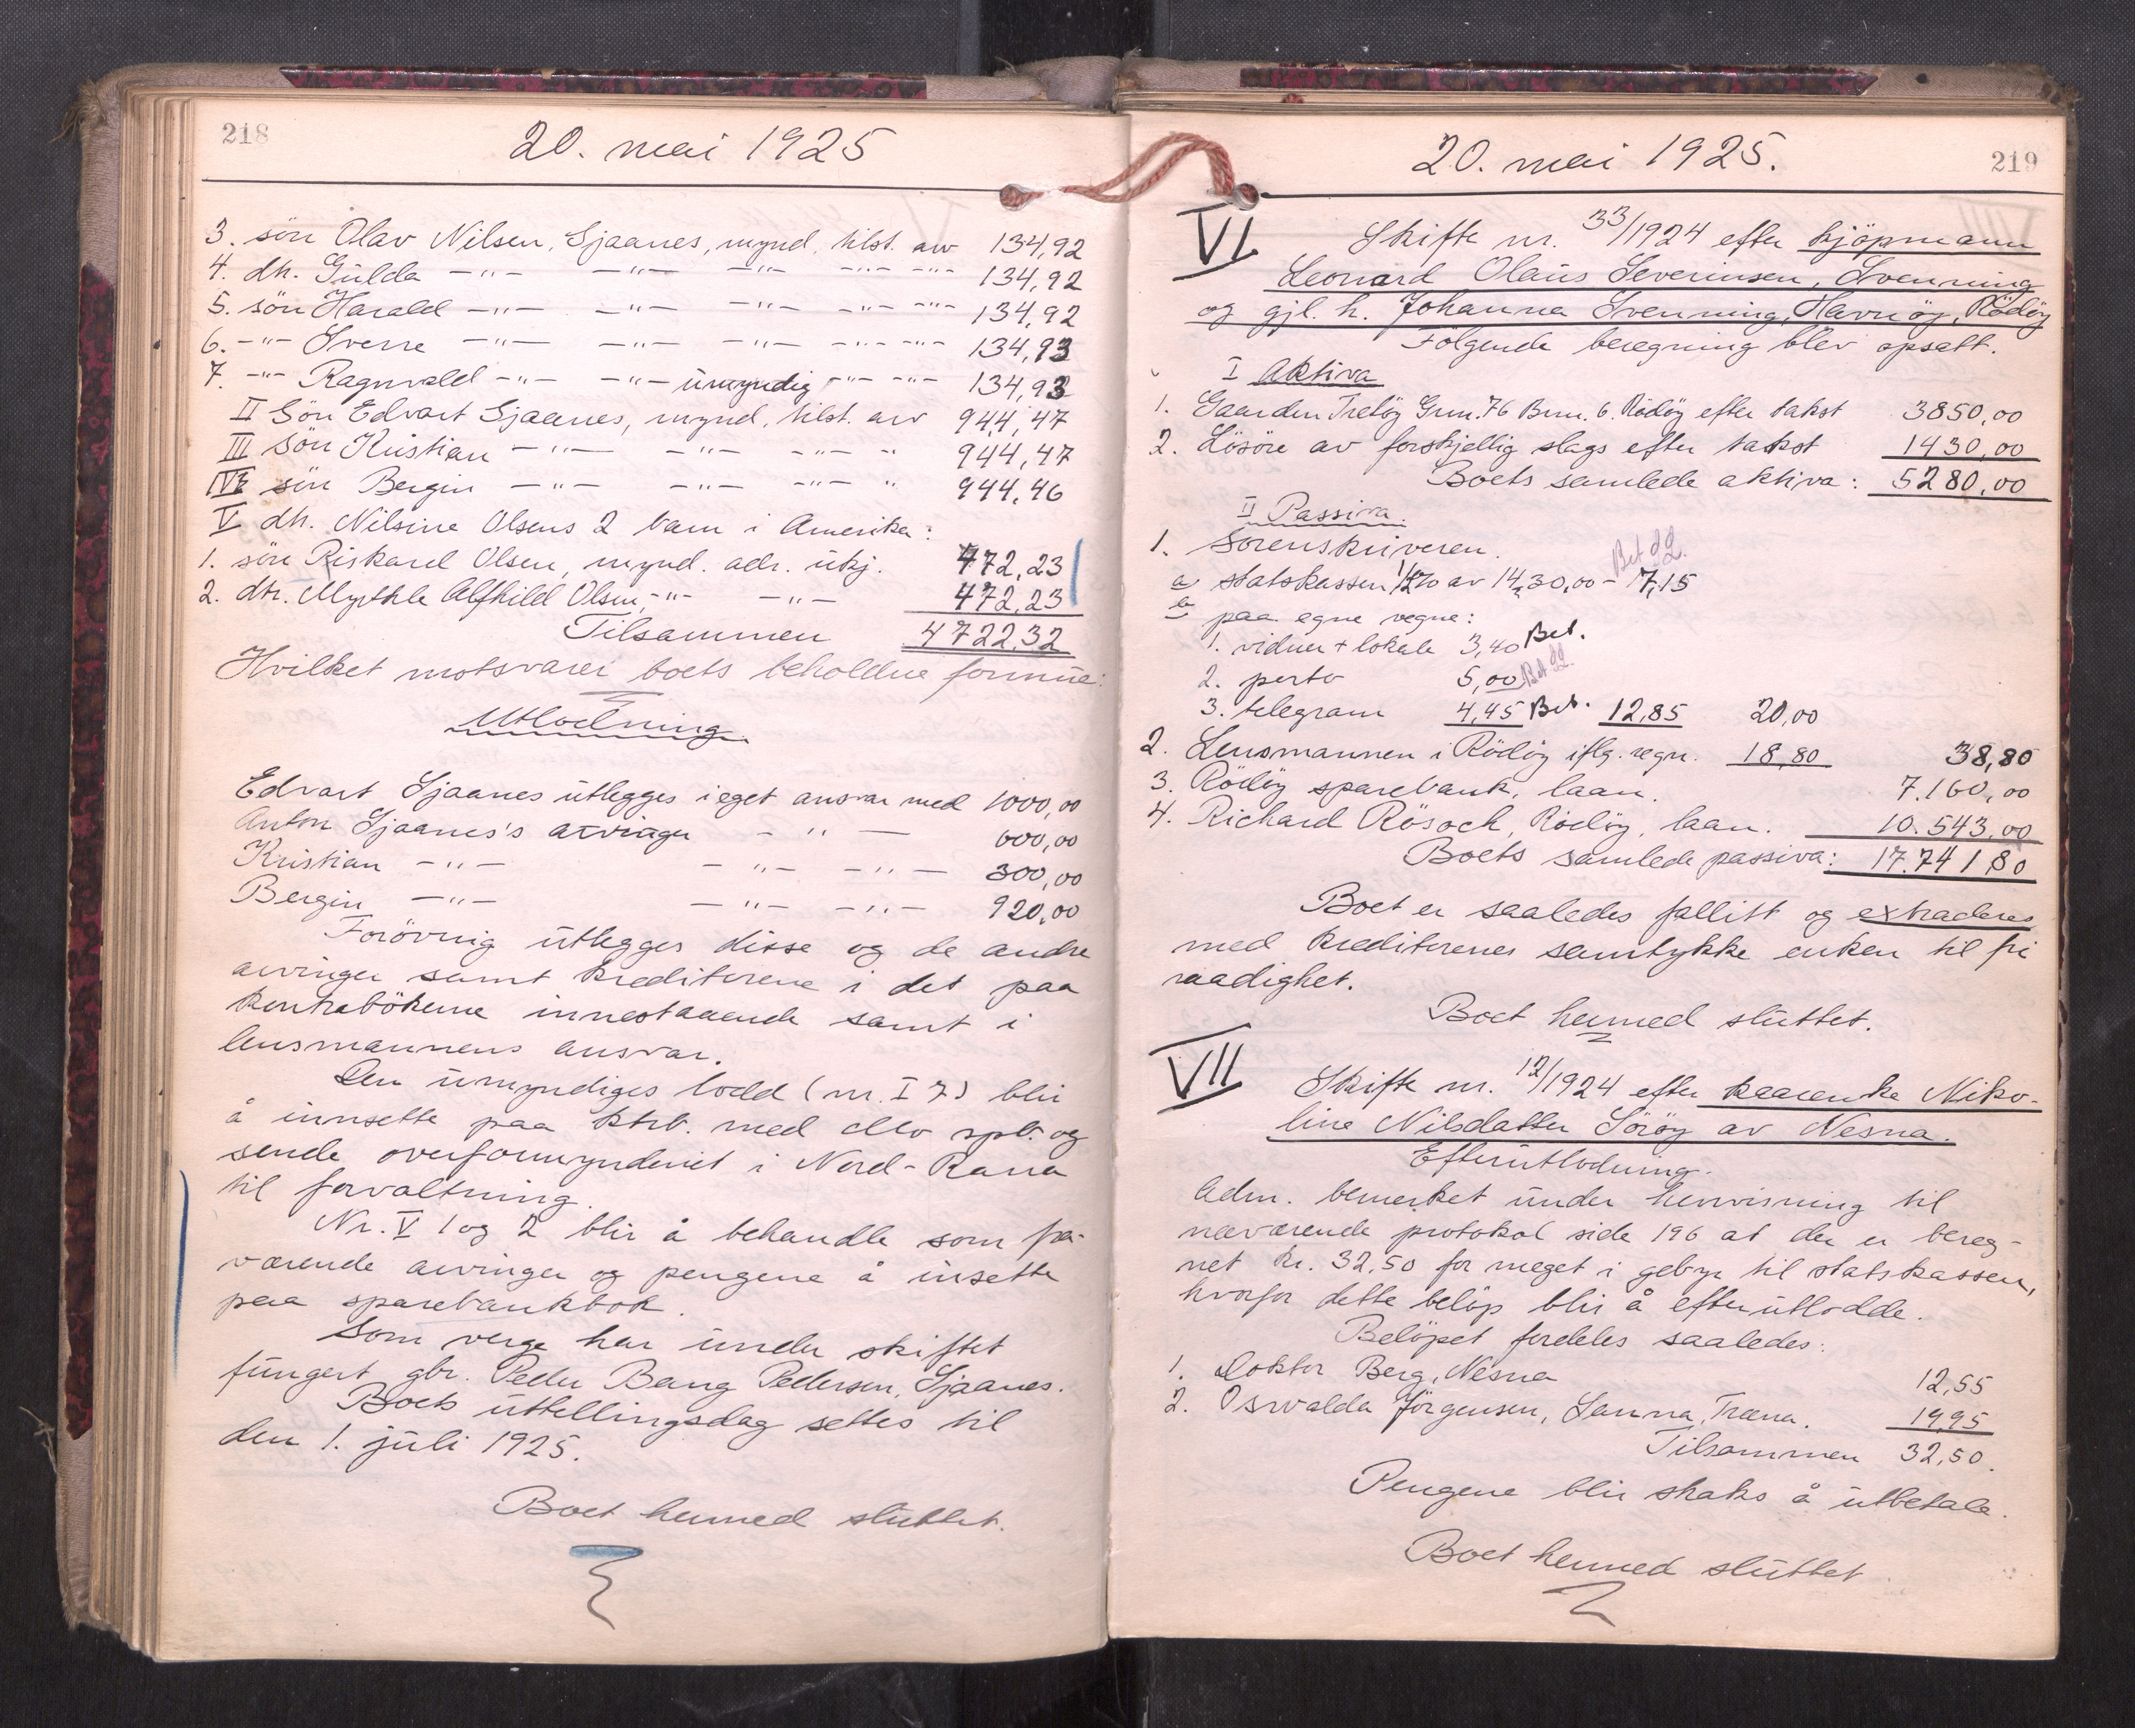 218
20. mai 1925
3. sön Olav Nilsen, Sjaanes, mynd, tilst. arv 134,92
4. dtr. Gulda -"- -"- -"- -"- -"- 134,92
5. sön Harald -"- -"- -"- -"- -"- 134,92
6. -"- Sverre -"- -"- -"- -"- -"- 134,93
7. -"- Ragnvald -"- -"- umyndig -"- -"- 134,93
II Sön Edvart Sjaanes, mynd, tilst. arv 944,47
III sön Kristian -"- -"- -"- " 944,47
IV sön Bergin -"- -"- -"- " 944,46
V dtr. Nilsine Olsens 2 barn i Amerika:
1. sön Riskard Olsen, mynd. adr. ukj. 472,23
2. dtr. Myrthle Alfhild Olsen, -"- -"- 472,23
Tilsammen 4722,32
Hvilket motsvarer boets beholdne formue:
Utlodning.
Edvart Sjaanes utlegges i eget ansvar med 1000,00
Anton Sjaanes's arvinger - " - 600,00
Kristian -"- -"- -"- 300,00
Bergin -"- -"- -"- 920,00
Forövrig utlegges disse og de andre
arvinger samt kreditorene i det paa
kontrabökene innestaaende samt i
lensmannens ansvar.
Den umyndiges lodd (nr. I 7) blir
å innsette paa ktrb. med Mo spb. og
sende overformynderiet i Nord-Rana
til forvaltning.
Nr. V 1 og 2 blir å behandle som fra-
værende arvinger og pengene å insette
paa sparebankbok.
Som verge har under skiftet
fungert gbr. Peder Bang Pedersen, Sjaanes.
Boets uttellingsdag settes til
den 1. juli 1925.
Boet hermed sluttet.
219
20. mai 1925.
VI
Skifte nr. 33/1924 efter kjöpmann
Leonard Olaus Severinsen, Svenning
og gjl. h. Johanna Svenning, Havnöy, Rödöy
Følgende beregning blev opsatt.
I Aktiva
1. Gaarden Tretöy Grnr. 76 Brnr. 6. Rödöy efter takst 3850,00
2. Lösöre av forskjellig slags efter takst 1430,00
Boets samlede aktiva: 5280,00
II Passiva.
1. Sorenskriveren.
a statskassen 1/2% av 1430,00 - 7,15 Bet 22.
b paa egne vegne:
1. vidner + lokale 3,40 Bet.
2. porto 5,00 Bet 22.
3. telegram 4,45 Bet. 12,85 20,00
2. Lensmannen i Rödöy iflg. regn. 18,80 38,80
3. Rödöy sparebank, laan. 7.160,00
4. Richard Rösok, Rödöy, laan. 10.543,00
Boets samlede passiva: 17.741 80
Boet er saaledes fallitt og extraderes
med kreditorenes samtykke enken til fri
raadighet.
Boet hermed sluttet.
VII
Skifte nr. 12/1924 efter kaarenke Niko-
line Nilsdatter Söröy av Nesna.
Efterutlodning.
Adm. bemerket under henvisning til
nærværende protokol side 196 at der er bereg-
net kr. 32,50 for meget i gebyr til statskassen,
hvorfor dette belöp blir å efterutlodde.
Belöpet fordeles saaledes:
1. Doktor Berg, Nesna 12,55
2. Osvalda Jörgensen, Sanna, Træna. 19,95
Tilsammen 32,50.
Pengene blir straks å utbetale.
Boet hermed sluttet